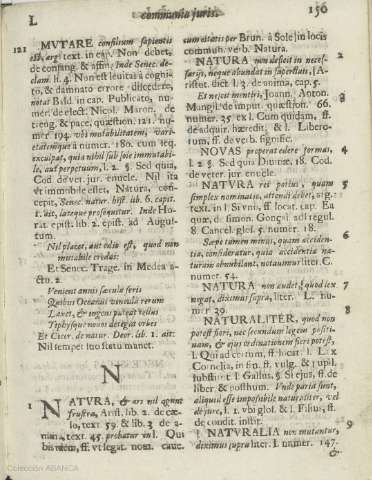 L
communia juris.
156
121
MVTARE consilium sapientis
est, arg. text. in cap. Non debet,
de consang. & affin. Inde Senec. de-
clam. ff. 4. Non est levitas à cogni-
to, & damnato errore discedere,
notat Bald. in cap. Publicato, nu-
mer. de elect. Nicol. Maron. de
treug. & pace, quæstion. 121. nu-
mer. 194. ubi mutabilitatem, vari-
etatemque à numer. 180. cum seq.
exculpat, quia nihil sub sole immutabi-
le, aut perpetuum, l. 2. §. Sed quia,
Cod. de veter. jur. enucle. Nil ita
ut immobile esset, Natura, con-
cepit, Senec. natur. hist. lib. 6. capit.
1. ait, lateque prosequitur. Inde Ho-
rat. epist. lib. 2. epist. ad Augu-
stum.
Nil placet, aut odio est, quod non
mutabile credas:
Et Senec. Trage. in Medea a-
cto. 2.
Venient annis sæcula seris
Quibus Oceanus vincula rerum
Laxet, & ingens pateat tellus
Tiphysque novos detegat orbes
Et Cicer. de natur. Deor. lib. 1. ait:
Nil semper suo statu manet.
N
1
NATVRA, & ars nil agunt
frustra, Arist. lib. 2. de cæ-
lo, text. 59. & lib. 3. de a-
nima, text. 45. probatur in l. Qui
bis idem, ff. de verb. legat. nom. cave.
cum altatis per Brun. à Sole in locis
commun. verb. Natura.
NATURA non deficit in neces-
sarijs, neque abundat in superfluis, [A-
ristot. dict. l. 3. de anima, cap. 5.
2
Et rejicit invitiri, Joann. Anton.
Mangil. de imput. quæstion. 66.
numer. 25. ex l. Cum quidam, ff.
de adquir. hæredit. & l. Liber-
3
rum, ff. de verb. signific.
NOVAS properat edere formas,
l. 2. §. Sed quia Divinæ, 18. Cod.
de veter. jur. enucle.
4
NATVRA rei potius, quam
simplex nominatio, attendi debet, arg.
text. in l. Si uni, ff. locat. cap. Ea
quæ, d. simon. Gonçal. ad l regul.
8. Cancel. glos. 5. numer. 18.
5
Sæpe tamen minus, quam acciden-
tia, consideratur, quia accidentia na-
turam abundant, notavimus liter. C.
numer. 54.
6
NATURA non audet, quod lex
negat, diximus supra, liter. L. nu-
mer. 39.
7
NATURALITER, quod non
potest fieri, nec secundum legem positi-
vam, & ejus ordinationem fieri potest,
l. Qui ad certum, ff. locat. l. Lex
Cornelia, in fin. ff. vulg. & pupil.
substit. l. Gallus, §. Et ejus, ff. de
liber. & posthum. Unde paria sunt,
aliquid esse impossibile naturaliter, vel
de jure, l. 1. ubi glos. & l. Filius, ff.
de condit. instit.
8
NATURALIA non mutantur,
diximus supra liter. I. numer. 147.
9
&
Colección ABANCA